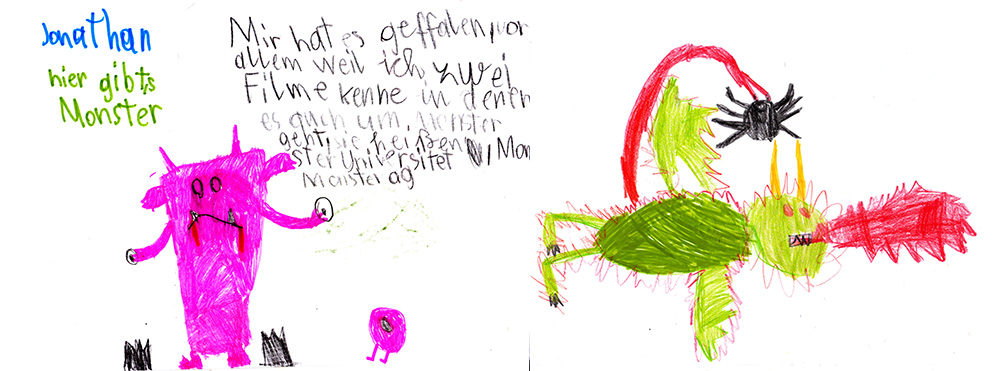 Jonathan
hier gibt,s
Monster
Mir hat es geffalen, vor
allem weil ich zwei
Filme kenne in denen
es auch um Monster
geht, sie heißen Mon
ster Universitet
Monster ag